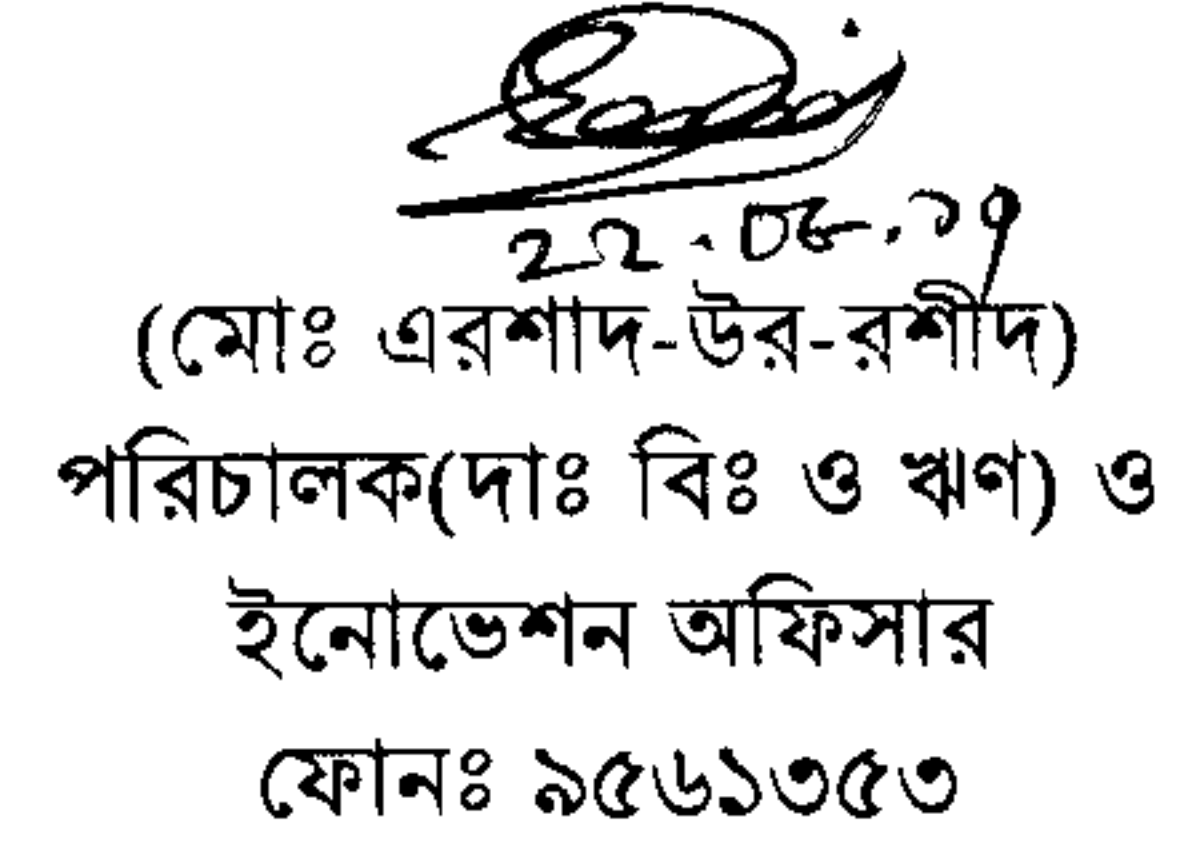 (মোঃ এরশাদ-উর-রশীদ)
পরিচালক(দাঃ বিঃ ও ঋণ) ও
ইনোভেশন অফিসার
ফোনঃ ৯৫৬১৩৫৩